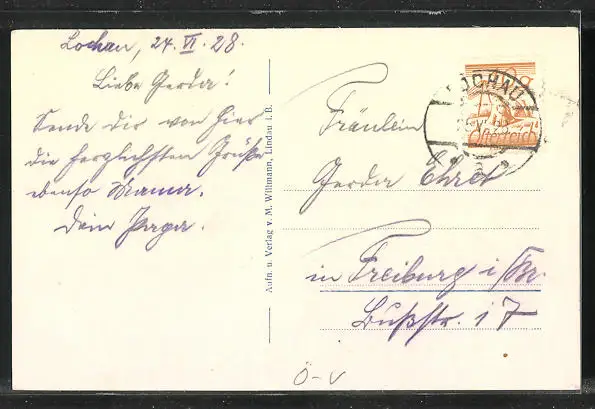 Lochau, 24. VI. 28.
Liebe Gerda!
Sende dir von hier
die herzlichsten Grüße
ebenso Mama.
Dein Papa.
Aufn. u. Verlag v. M. Wittmann, Lindau i. B.
LOCHAU
Österreich
Fräulein
Gerda Ehret
in Freiburg i/Br.
17
Ö-V